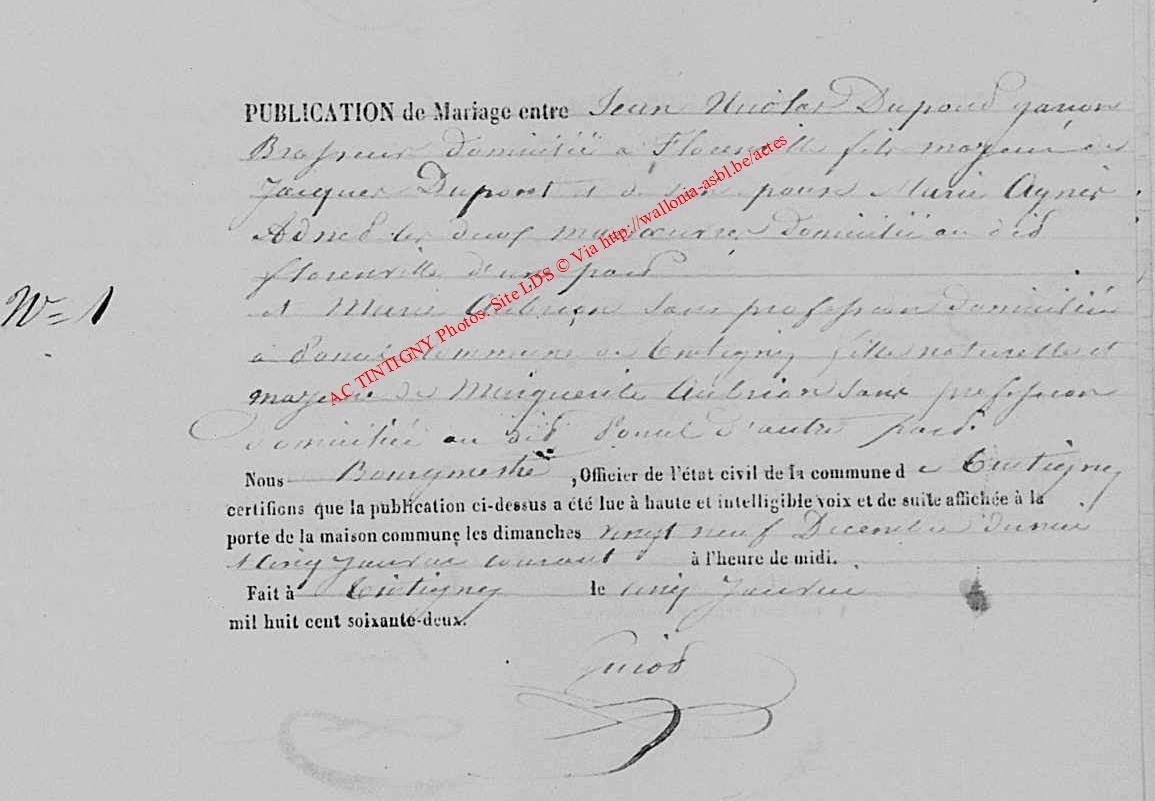 PUBLICATION de Mariage entre Jean Nicolas Dupond garçon
Brasseur domicilié à Florenville fils majeur de
Jacques Dupont et de son épouse Marie Agnès
Adnet les deux manoeuvres domiciliés au dit
florenville d'une part
et Marie Aubrion sans profession domiciliée
N=1
à commune de Tintigny fille naturelle et
majeure de Marguerite Aubrion sans profession
domiciliée au dit d'autre part.
Nous Bourgmestre, Officier de l'état civil de la commune d e Tintigny
certifions que la publication ci-dessus a été lue à haute et intelligible voix et de suite affichée à la
porte de la maison commune les dimanches vingt neuf Décembre dernier
et cinq Janvier courant à l'heure de midi.
Fait à Tintigny le cinq Janvier
mil huit cent soixante-deux.
AC TINTIGNY Photos. Site LDS © Via http://wallonia-asbl.be/actes